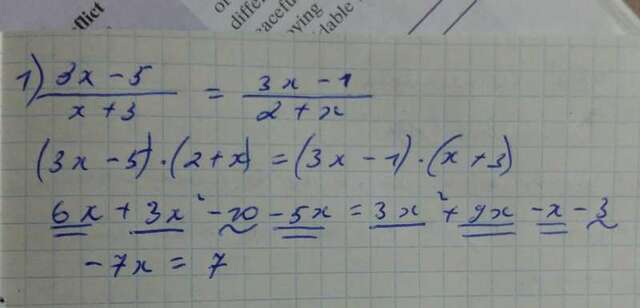 flict
differe
aceful
ying
dable
1) 3x - 5 / x + 3 = 3x - 1 / 2 + x
(3x - 5) · (2 + x) = (3x - 1) · (x + 3)
6x + 3x² - 10 - 5x = 3x² + 9x - x - 3
- 7x = 7